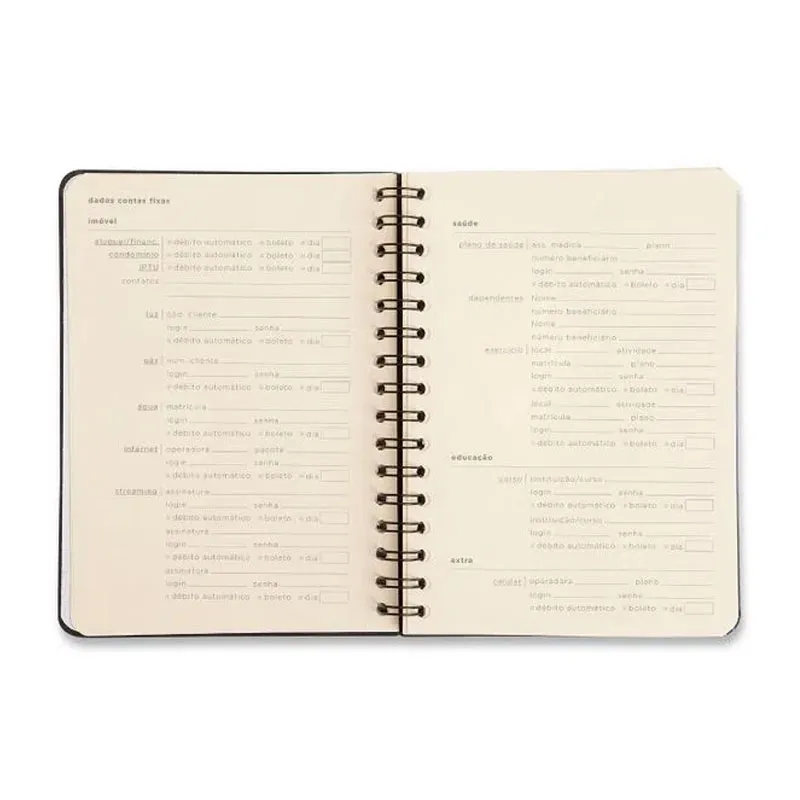 dados contas fixas
imóvel
aluguel/financ. débito automático boleto dia
condomínio débito automático boleto dia
IPTU débito automático boleto dia
contatos
luz núm. cliente
login senha
débito automático boleto dia
gás núm. cliente
login senha
débito automático boleto dia
água matrícula
login senha
débito automático boleto dia
internet operadora pacote
login senha
débito automático boleto dia
streaming assinatura
login senha
débito automático boleto dia
assinatura
login senha
débito automático boleto dia
assinatura
login senha
débito automático boleto dia
saúde
plano de saúde ass. médica plano
número beneficiário
login senha
débito automático boleto dia
dependentes Nome
número beneficiário
Nome
número beneficiário
exercício local atividade
matrícula plano
login senha
débito automático boleto dia
local atividade
matrícula plano
login senha
débito automático boleto dia
educação
curso instituição/curso
login senha
débito automático boleto dia
instituição/curso
login senha
débito automático boleto dia
extra
celular operadora plano
login senha
débito automático boleto dia